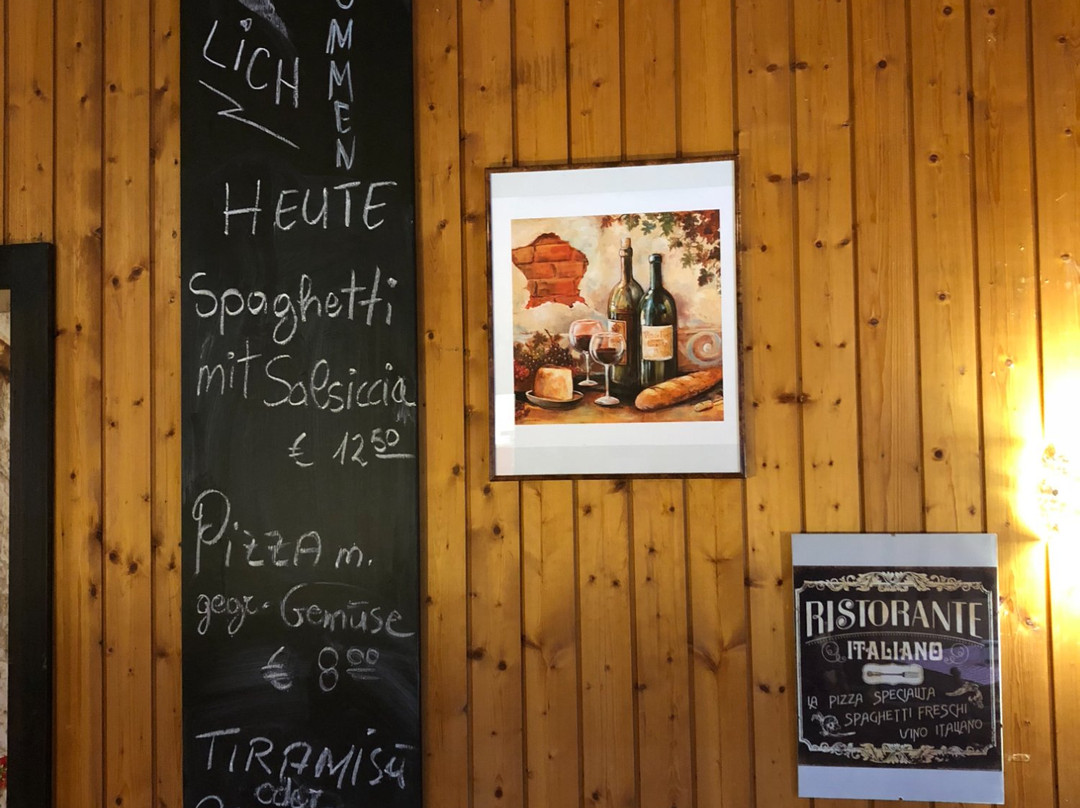 LiCH
OMMEN
HEUTE
Spaghetti
mit Salsiccia
€ 12 50
PizzA m.
gegr. Gemüse
€ 8 00
TIRAMISU
oder
RISTORANTE
ITALIANO
LA PIZZA SPECIALITA
SPAGHETTI FRESCHI
VINO ITALIANO